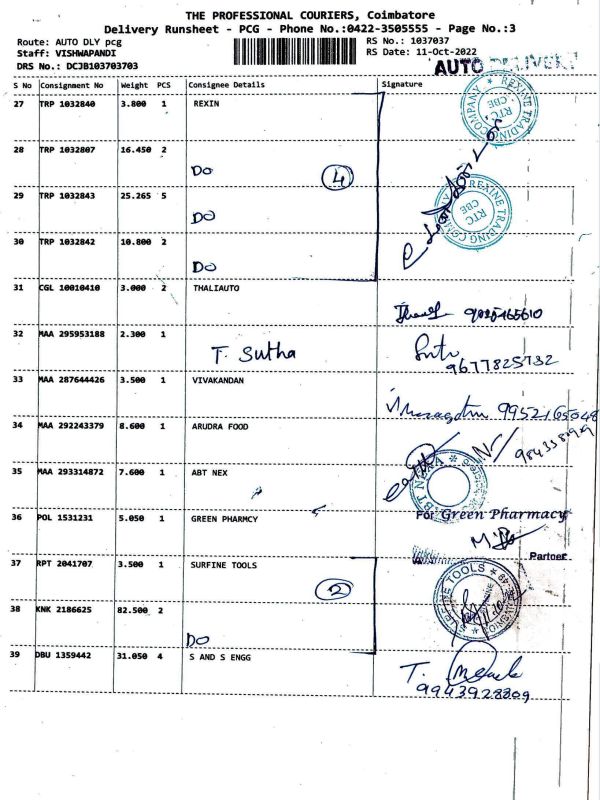 THE PROFESSIONAL COURIERS, Coimbatore
Delivery Runsheet - PCG - Phone No.:0422-3505555 - Page No.:3
Route: AUTO DLY pcg
RS No.: 1037037
Staff: VISHWAPANDI
RS Date: 11-Oct-2022
DRS No.: DCJB103703703
AUTO DELIVERY
S No Consignment No Weight PCS Consignee Details Signature
27 TRP 1032840 3.800 1 REXIN
REXINE TRADING COMPANY * RTC CBE
28 TRP 1032807 16.450 2
DO
4
29 TRP 1032843 25.265 5
DO
REXINE TRADING COMPANY RTC CBE
30 TRP 1032842 10.800 2
DO
31 CGL 10010410 3.000 2 THALIAUTO
32 MAA 295953188 2.300 1
T. Sutha
9677825732
33 MAA 287644426 3.500 1 VIVAKANDAN
9952165048
34 MAA 292243379 8.600 1 ARUDRA FOOD
35 MAA 293314872 7.600 1 ABT NEX
36 POL 1531231 5.050 1 GREEN PHARMCY
For Green Pharmacy
Partner
37 RPT 2041707 3.500 1 SURFINE TOOLS
2
SURFINE TOOLS
38 KNK 2186625 82.500 2
DO
39 DBU 1359442 31.050 4 S AND S ENGG
T.
9943928809